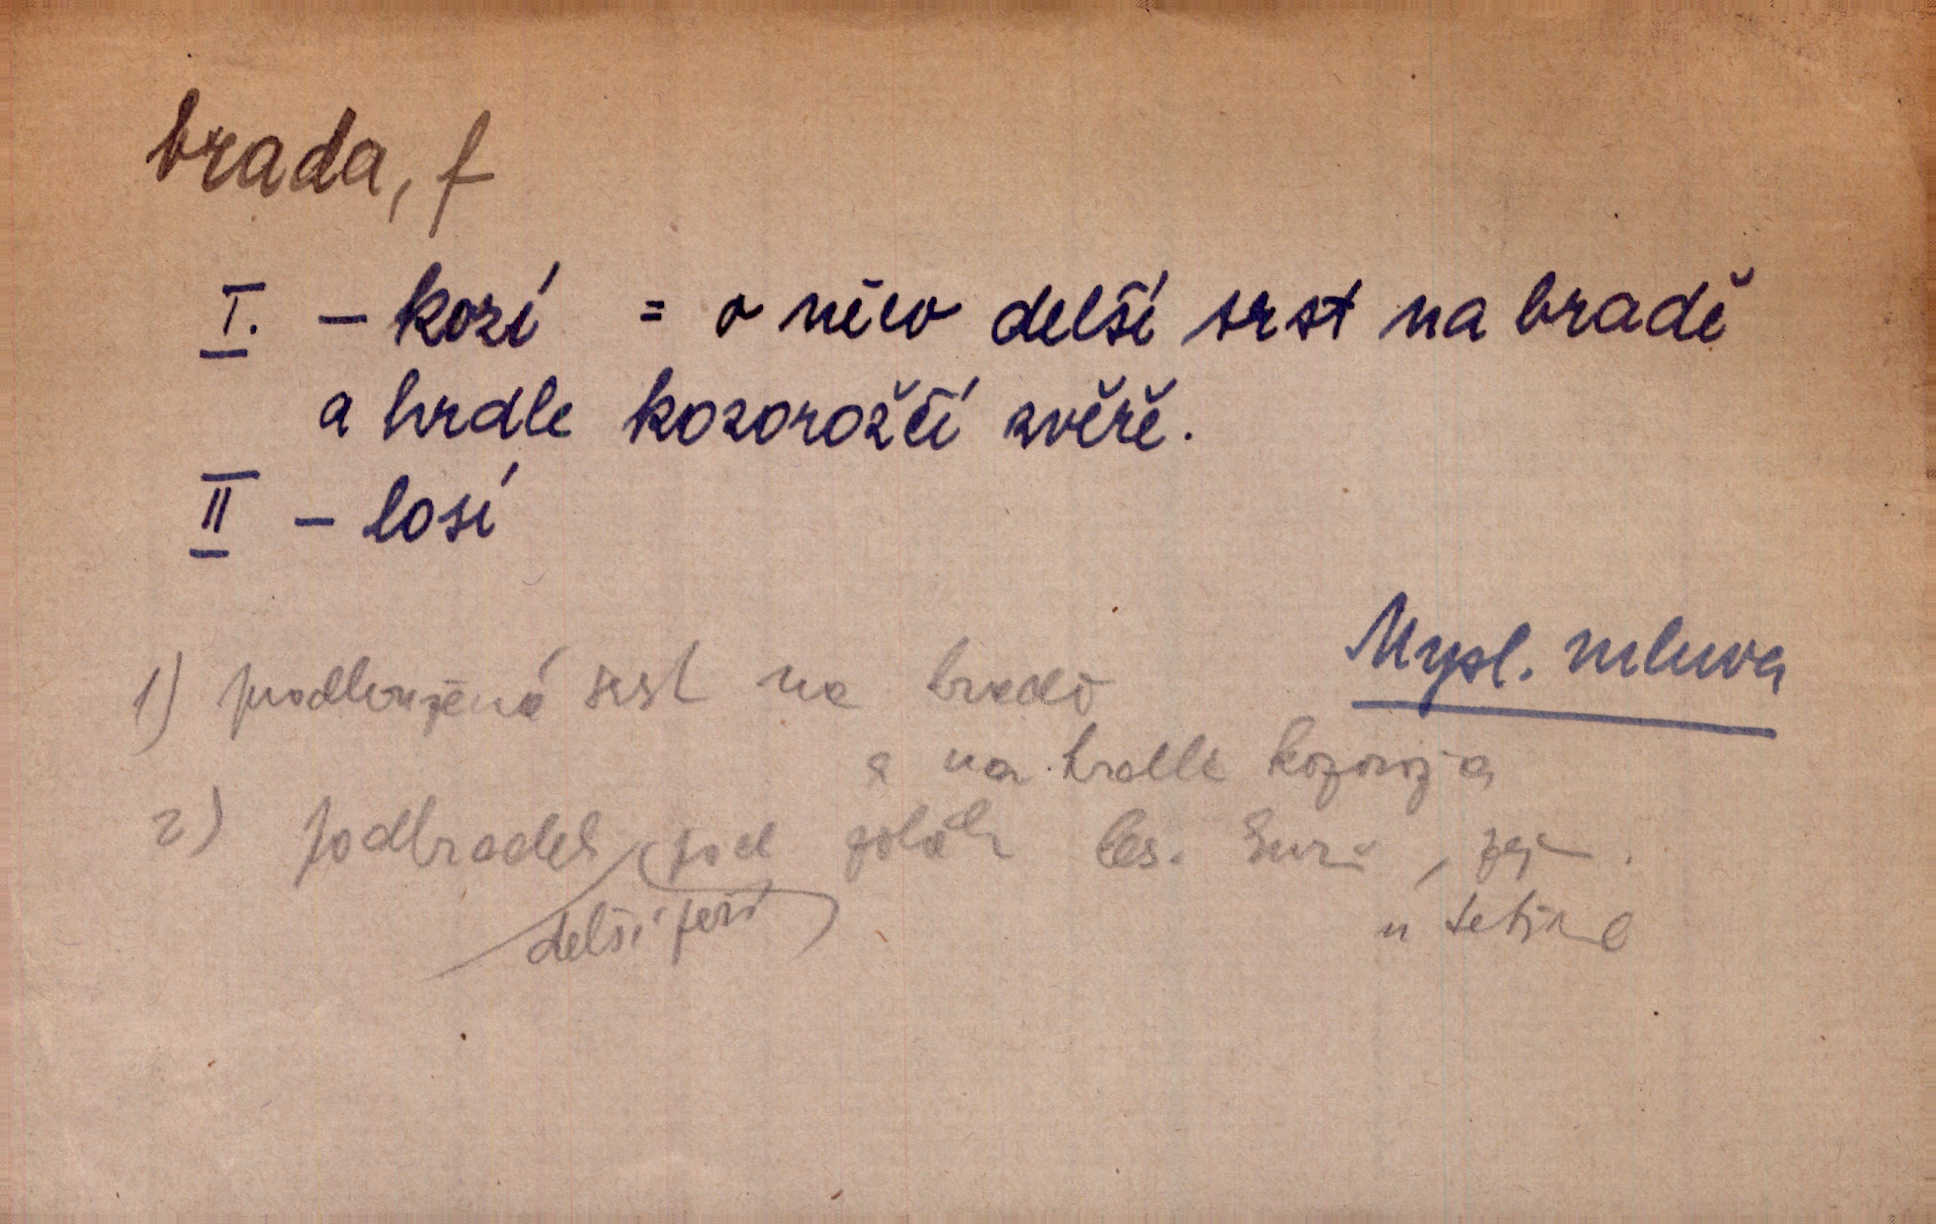 brada, f
I. – kozí = o něco delší srst na bradě
a hrdle kozorožčí zvěře.
II – losí
Mysl. mluva
1) prodloužená srst na bradě
a na hrdle kozorožα
2) podbradek (pod les. kurů, zejm.
delší peří)
u tetřeva